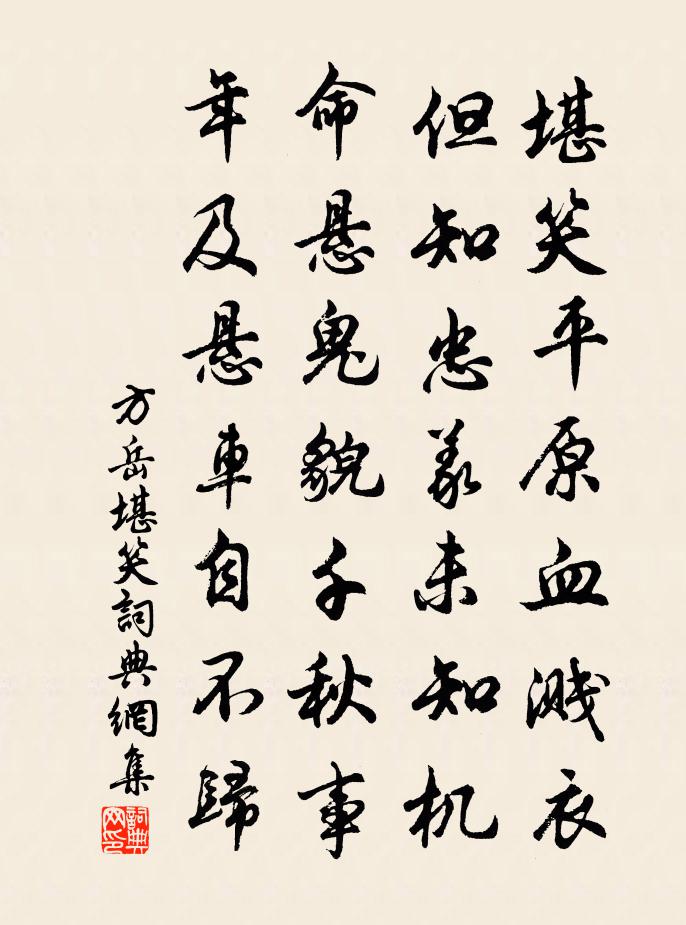 堪笑平原血溅衣
但知忠義未知机
命悬鬼貌千秋事
年及悬車自不歸
方岳堪笑詞典網集
詞典网印